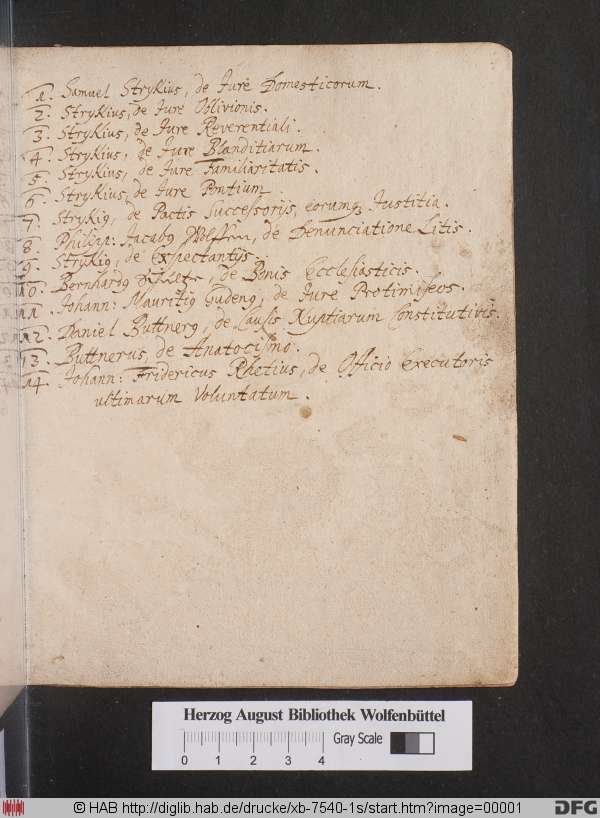 1. Samuel Strykius, de Jure Domesticorum.
2. Strykius, de Jure Oblivionis.
3. Strykius, de Jure Reverentiali.
4. Strykius, de Jure Blanditiarum.
5. Strykius, de Jure Familiaritatis.
6. Strykius, de Jure Pontium.
7. Strykiꝰ, de Pactis Successorijs, eorumqꝫ Justitia.
8. Philipp: Jacabꝰ Wolffen, de Denunciatione Litis.
9. Strykiꝰ, de Exspectantijs.
10. Bernhardꝰ de Bonis Ecclesiasticis.
11. Johann: Mauritiꝰ Gudenꝰ, de Jure Protimiseos.
12. Daniel Buttnerꝰ, de Causis Nuptiarum Constitutivis.
13. Buttnerus, de Anatocismo.
14. Johann: Fridericus Rhetius, de Officio Executoris
ultimarum Voluntatum.
Herzog August Bibliothek Wolfenbüttel
Gray Scale
0 1 2 3 4
© HAB http://diglib.hab.de/drucke/xb-7540-1s/start.htm?image=00001
DFG